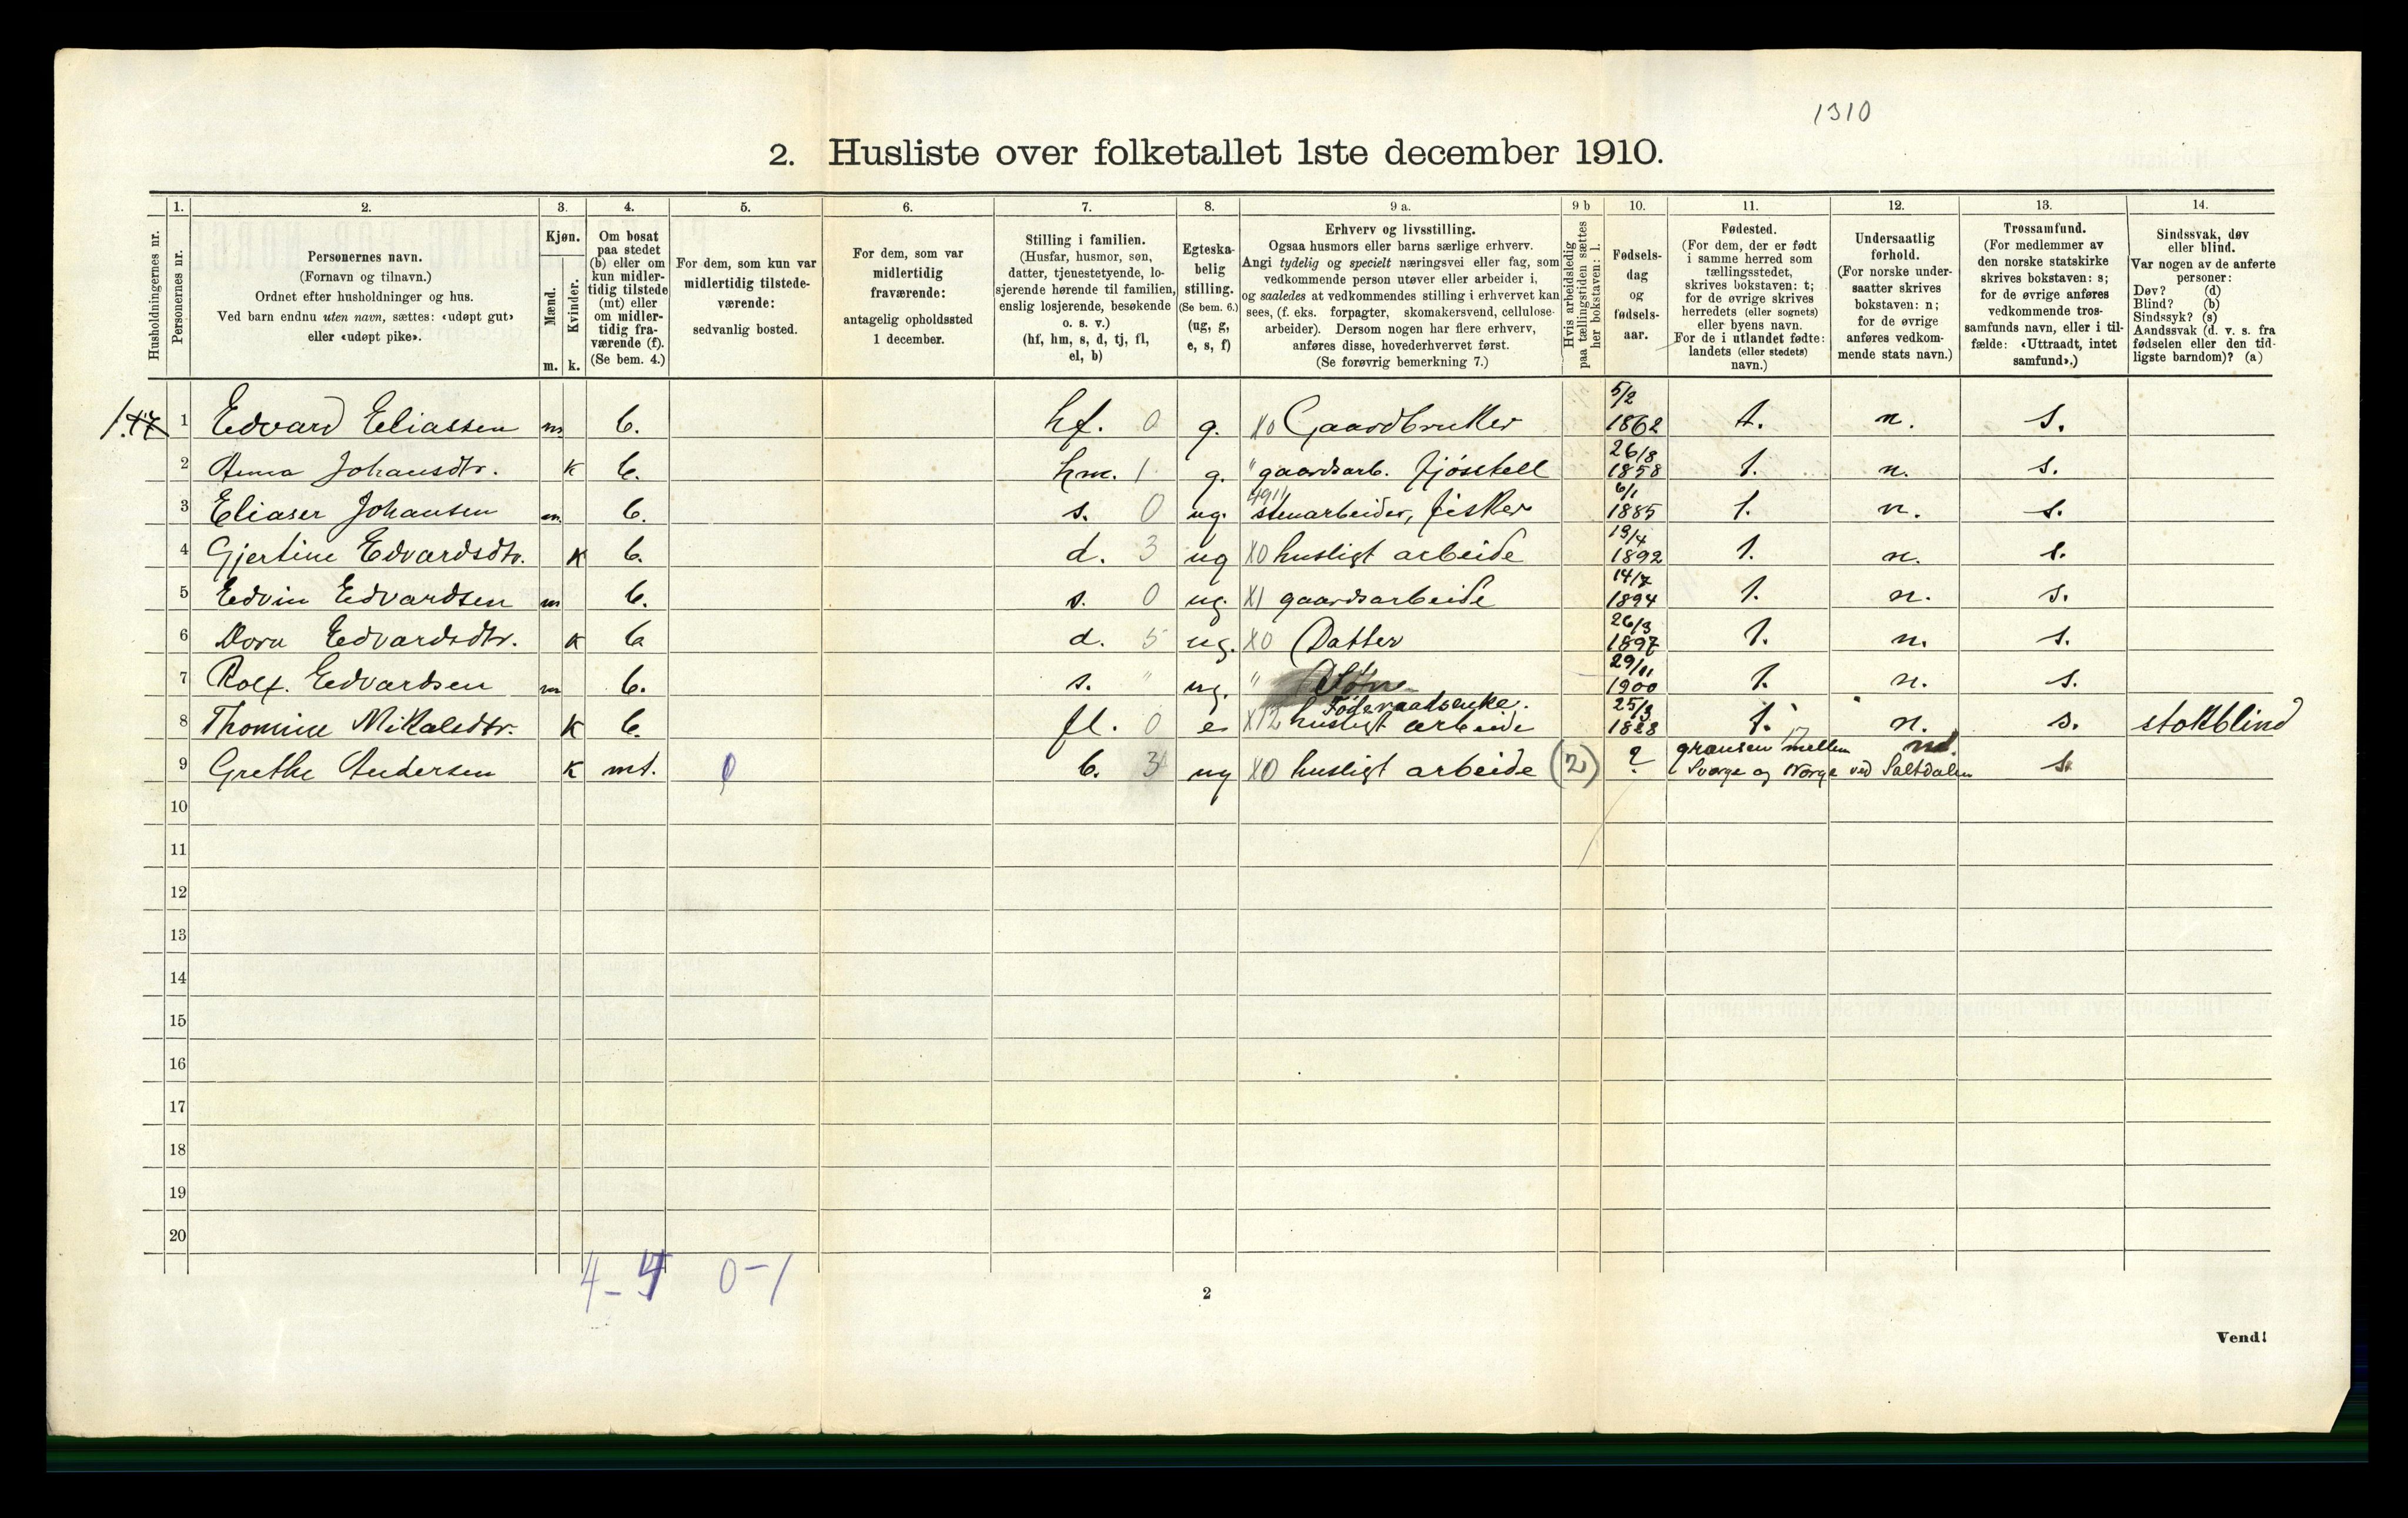 1310
2. Husliste over folketallet 1ste december 1910.
Husholdningernes nr.
1.
Personernes nr.
2.
Personernes navn.
(Fornavn og tilnavn.)
Ordnet efter husholdninger og hus.
Ved barn endnu uten navn, sættes: «udøpt gut»
eller «udøpt pike».
3.
Kjøn.
Mænd.
Kvinder.
m. k.
4.
Om bosat
paa stedet
(b) eller om
kun midler-
tidig tilstede
(mt) eller
om midler-
tidig fra-
værende (f).
(Se bem. 4.)
5.
For dem, som kun var
midlertidig tilstede-
værende:
sedvanlig bosted.
6.
For dem, som var
midlertidig
fraværende:
antagelig opholdssted
1 december.
7.
Stilling i familien.
(Husfar, husmor, søn,
datter, tjenestetyende, lo-
sjerende hørende til familien,
enslig losjerende, besøkende
o. s. v.)
(hf, hm, s, d, tj, fl,
el, b)
8.
Egteska-
belig
stilling.
(Se bem. 6.)
(ug, g,
e, s, f)
9 a.
Erhverv og livsstilling.
Ogsaa husmors eller barns særlige erhverv.
Angi tydelig og specielt næringsvei eller fag, som
vedkommende person utøver eller arbeider i,
og saaledes at vedkommendes stilling i erhvervet kan
sees, (f. eks. forpagter, skomakersvend, cellulose-
arbeider). Dersom nogen har flere erhverv,
anføres disse, hovederhvervet først.
(Se forøvrig bemerkning 7.)
9 b
Hvis arbeidsledig
paa tællingstiden sættes
her bokstaven: l.
10.
Fødsels-
dag
og
fødsels-
aar.
11.
Fødested.
(For dem, der er født
i samme herred som
tællingsstedet,
skrives bokstaven: t;
for de øvrige skrives
herredets (eller sognets)
eller byens navn.
For de i utlandet fødte:
landets (eller stedets)
navn.)
12.
Undersaatlig
forhold.
(For norske under-
saatter skrives
bokstaven: n;
for de øvrige
anføres vedkom-
mende stats navn.)
13.
Trossamfund.
(For medlemmer av
den norske statskirke
skrives bokstaven: s;
for de øvrige anføres
vedkommende tros-
samfunds navn, eller i til-
fælde: «Uttraadt, intet
samfund».)
14.
Sindssvak, døv
eller blind.
Var nogen av de anførte
personer:
Døv? (d)
Blind? (b)
Sindssyk? (s)
Aandssvak (d. v. s. fra
fødselen eller den tid-
ligste barndom)? (a)
1. 1 Edvard Eliassen m b. hf. 0 g. X0 Gaardbruker 5/2 1862 t. n. s.
2 Anna Johansdtr. k b. hm. 1 g. " gaardsarb. fjösstell 26/8 1858 t. n. s.
3 Eliaser Johansen m b. s. 0 ug. stenarbeider, fisker 6/1 1885 t. n. s.
4 Gjertine Edvardsdtr. k b. d. 3 ug X0 husligt arbeide 13/4 1892 t. n. s.
5 Edvin Edvardsen m b. s. 0 ug. X1 gaardsarbeide 14/7 1894 t. n. s.
6 Dora Edvardsdtr. k b d. 5 ug. X0 Datter 26/3 1897 t. n. s.
7 Rolf. Edvardsen m b. s. " ug. " Sön 29/11 1900 t. n. s.
Föderaadsenke.
8 Thomine Mikalsdtr. k b. fl. 0 e X12 husligt arbeide 25/3 1828 t. n. s. stokblind
9 Grethe Andersen k mt. 0 b. 3 ug X0 husligt arbeide (2) ? grænsen mellem Sverge og Norge ved Saltdalen s.
10
11
12
13
14
15
16
17
18
19
20
4 - 4 0 - 1
2
Vend!